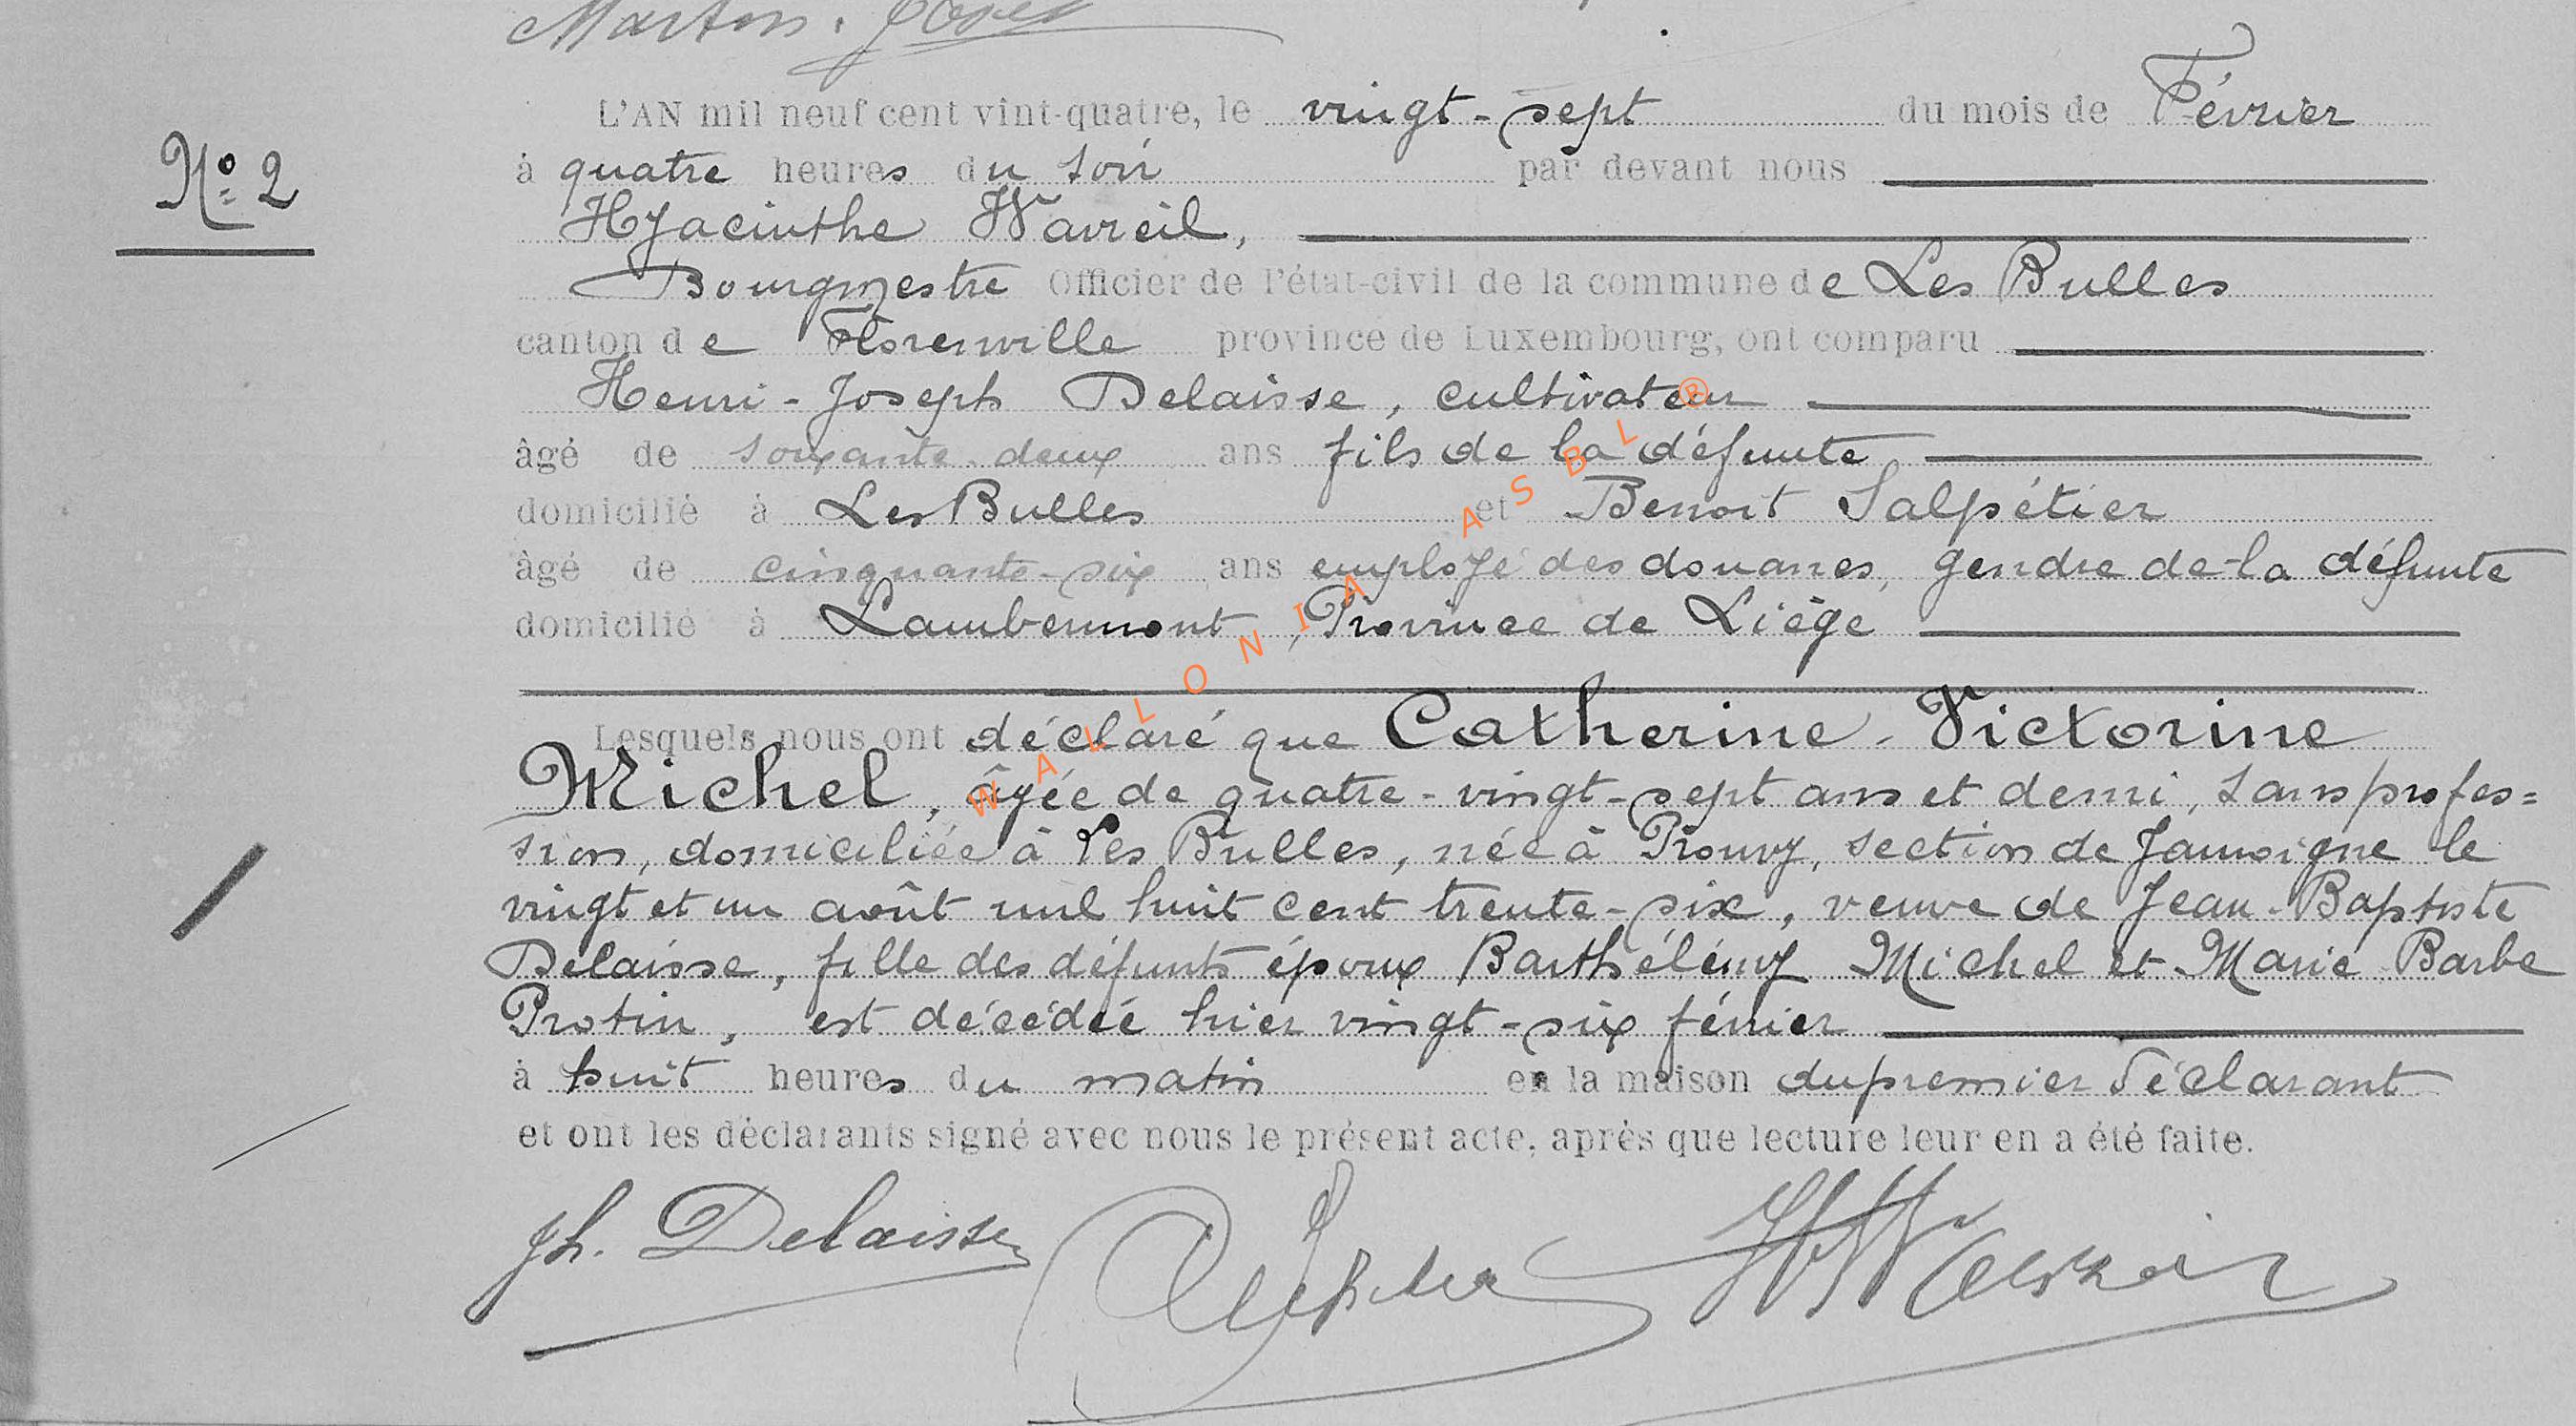 L'AN mil neuf cent vint-quatre, le vingt-sept du mois de Février
N° 2
à quatre heures du soir par devant nous
Hyacinthe Wavreil,
Bourgmestre Officier de l'état-civil de la commune de Les Bulles
canton de Florenville province de Luxembourg, ont comparu
Henri-Joseph Delaisse, cultivateur
âgé de soixante-deux ans fils de la défunte
domicilié à Les Bulles et Benoit Salpétier
âgé de cinquante-six ans employé des douanes, gendre de la défunte
domicilié à Lambermont, Province de Liège
Lesquels nous ont déclaré que Catherine-Victorine
Michel, âgée de quatre-vingt-sept ans et demi, sans profes=
sion, domiciliée à Les Bulles, née à Prouvy, section de Jamoigne le
vingt et un août mil huit cent trente-six, veuve de Jean-Baptiste
Delaisse, fille des défunts époux Barthélémy Michel et Marie Barbe
Protin, est décédée hier vingt-six février
à huit heures du matin en la maison du premier déclarant
et ont les déclarants signé avec nous le présent acte, après que lecture leur en a été faite.
Jh. Delaisse
WALLONIA ASBL ®